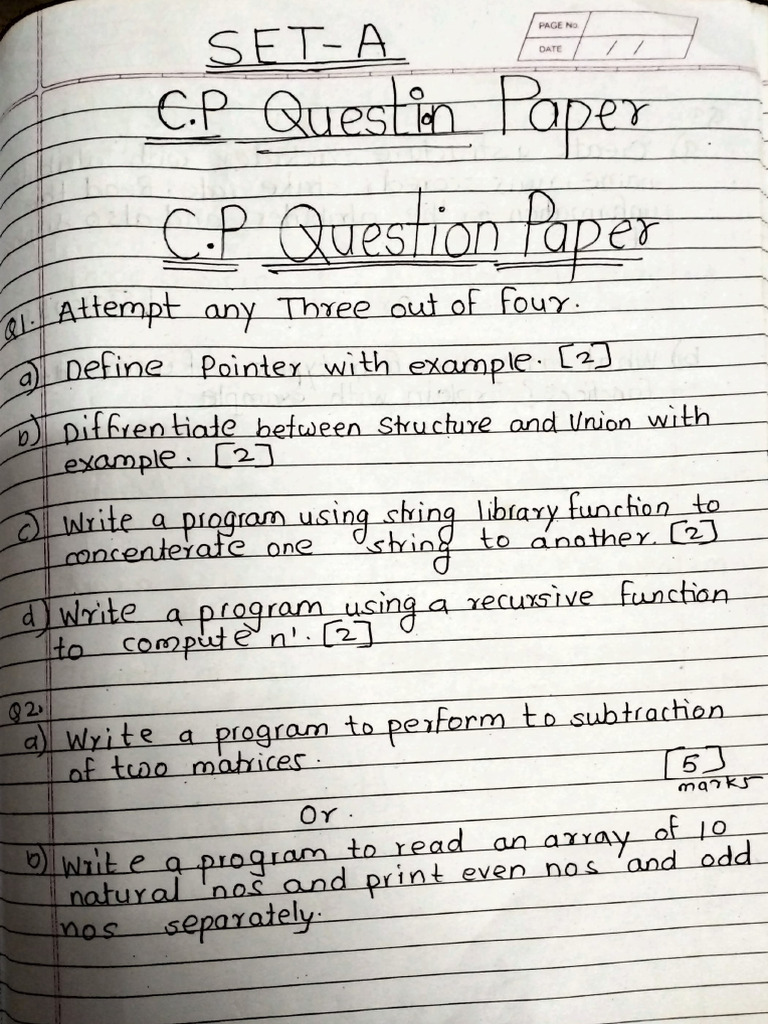 SET-A
PAGE No.
DATE / /
C.P Questin Paper
C.P Question Paper
Q1. Attempt any Three out of four.
a) Define Pointer with example. [2]
b) Diffrentiate between Structure and Union with
example. [2]
c) Write a program using string library function to
concenterate one string to another. [2]
d) Write a program using a recursive function
to compute n'. [2]
Q2.
a) Write a program to perform to subtraction
of two matrices. [5]
marks
Or.
b) Write a program to read an array of 10
natural nos and print even nos and odd
nos separately.